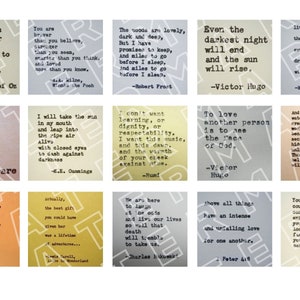 You are
braver
than you believe,
stronger
than you seem,
smarter than you think,
and loved
more than you know.
-A.A. Milne,
Winnie the Pooh
The woods are lovely,
dark and deep,
But I have
promises to keep,
And miles to go
before I sleep,
And miles to go
before I sleep.
-Robert Frost
Even the
darkest night
will end
and the sun
will rise.
-Victor Hugo
I will take the sun
in my mouth
and leap into
the ripe air
Alive
with closed eyes
to dash against
darkness
-E.E. Cummings
I don't want
learning, or
dignity, or
respectability.
I want this music
and this dawn
and the warmth
of your cheek
against mine.
-Rumi
To love
another person
is to see
the face
of God.
-Victor
Hugo
Actually,
the best gift
you could have
given her
was a lifetime
of adventures...
-Lewis Carroll,
We are here
to laugh
at the odds
and live our lives
so well that
death
will tremble
to take us.
-Charles Bukowski
Above all things
have an intense
and unfailing love
for one another.
1 Peter 4:8